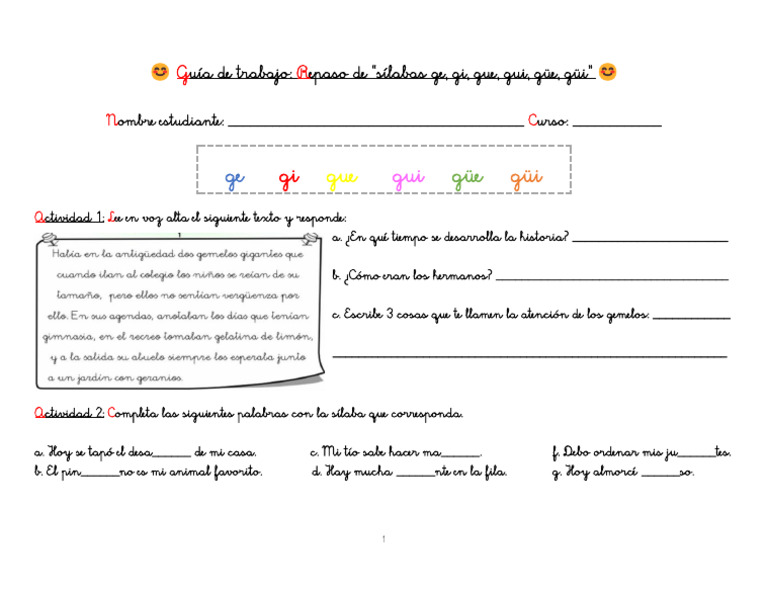 😊 Guía de trabajo: Repaso de "sílabas ge, gi, gue, gui, güe, güi" 😊
Nombre estudiante: ______________________ Curso: __________
ge gi gue gui güe güi
Actividad 1: Lee en voz alta el siguiente texto y responde:
1
Había en la antigüedad dos gemelos gigantes que
cuando iban al colegio los niños se reían de su
tamaño, pero ellos no sentían vergüenza por
ello. En sus agendas, anotaban los días que tenían
gimnasia, en el recreo tomaban gelatina de limón,
y a la salida su abuelo siempre los esperaba junto
a un jardín con geranios.
a. ¿En qué tiempo se desarrolla la historia? ____________________
b. ¿Cómo eran los hermanos? ______________________________
c. Escribe 3 cosas que te llamen la atención de los gemelos: __________
__________________________________________________
Actividad 2: Completa las siguientes palabras con la sílaba que corresponda.
a. Hoy se tapó el desa______ de mi casa. c. Mi tío sabe hacer ma______. f. Debo ordenar mis ju______tes.
b. El pin______no es mi animal favorito. d. Hay mucha ______nte en la fila. g. Hoy almorcé ______so.
1